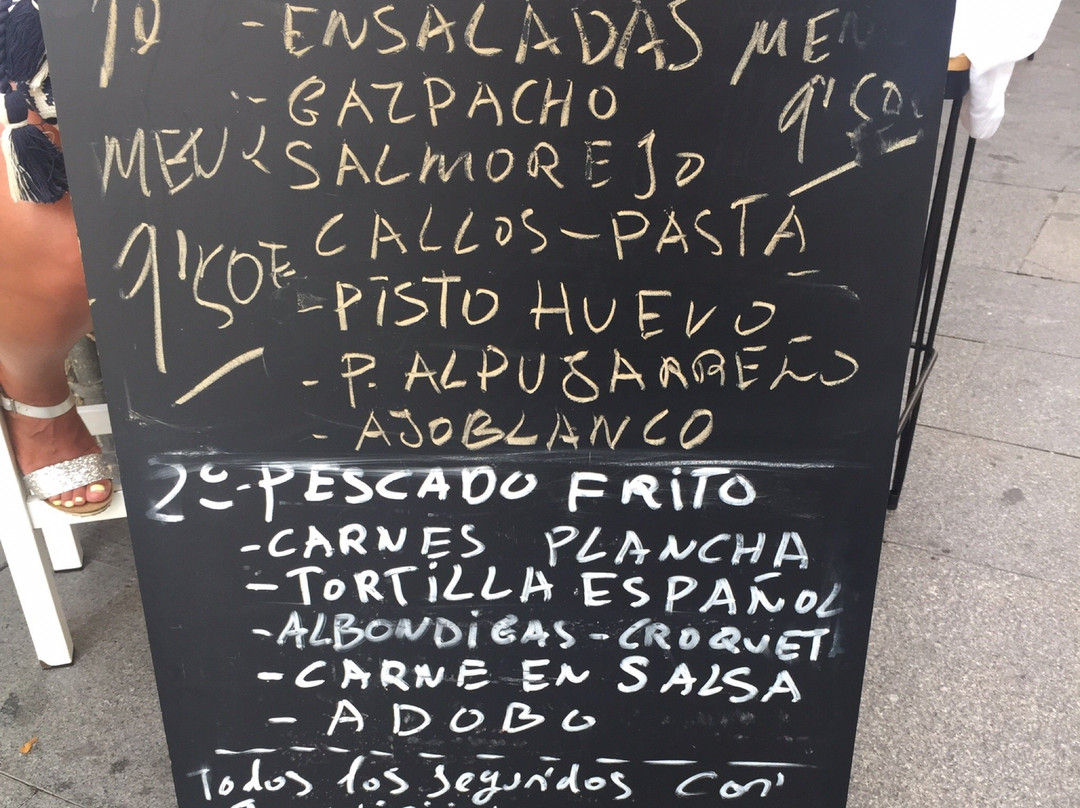 1º - ENSALADAS MEN
- GAZPACHO 9'50
MENÚ SALMOREJO
CALLOS - PASTA
9'50E
- PISTO HUEVO
- P. ALPUJARREÑO
- AJOBLANCO
2º - PESCADO FRITO
- CARNES PLANCHA
- TORTILLA ESPAÑOL
- ALBONDIGAS - CROQUET
- CARNE EN SALSA
- ADOBO
Todos los segundos con